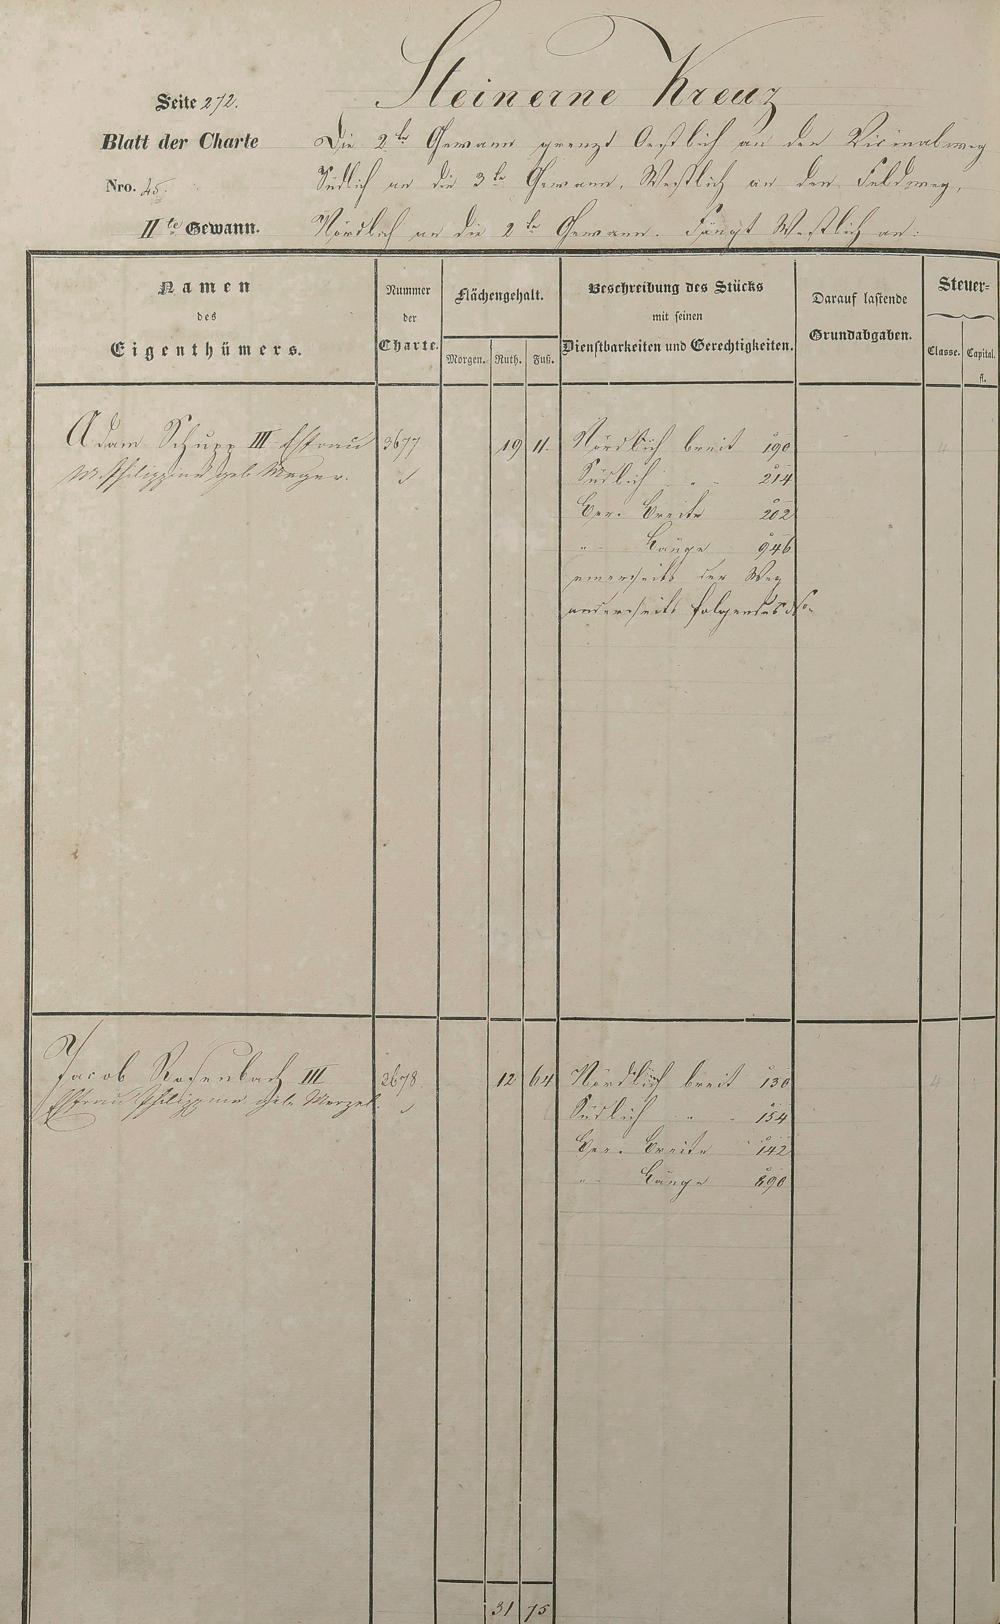 Steinerne Kreuz
Seite 272.
Blatt der Charte
Nro. 45.
IIte Gewann.
Die 2te Gewann grenzt Oestlich an den Vicinalweg
Südlich an die 3te Gewann, Westlich an den Feldweg,
Nördlich an die 2te Gewann. Fängt Westlich an:
Namen
des
Eigenthümers.
Nummer
der
Charte.
Flächengehalt.
Morgen. Ruth. Fuß.
Beschreibung des Stücks
mit seinen
Dienstbarkeiten und Gerechtigkeiten.
Darauf lastende
Grundabgaben.
Steuer=
Classe. Capital.
fl.
Adam Schupp III Ehfrau 3677 19 11. Nördlich breit 190
M. Philippine geb. Mayer. Südlich " " 214
Ger. Breite 202
" Länge 946
einerseits der Weg
anderseits folgendes
Jacob Rosenbach III 2678 12 64 Nördlich breit 130
Ehfrau Philippine geb. Südlich " " 154
Ger. Breite 142
" Länge 890
31 75